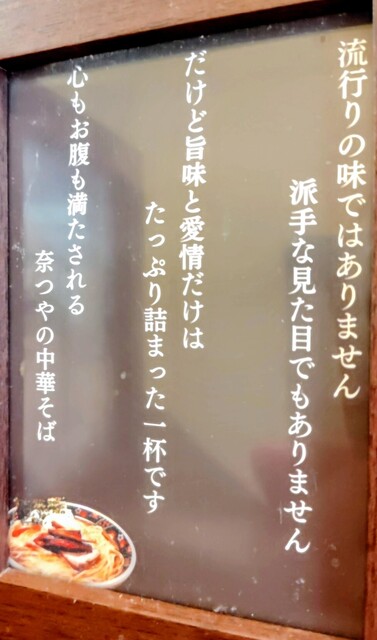 流行りの味ではありません
派手な見た目でもありません
だけど旨味と愛情だけは
たっぷり詰まった一杯です
心もお腹も満たされる
奈つやの中華そば